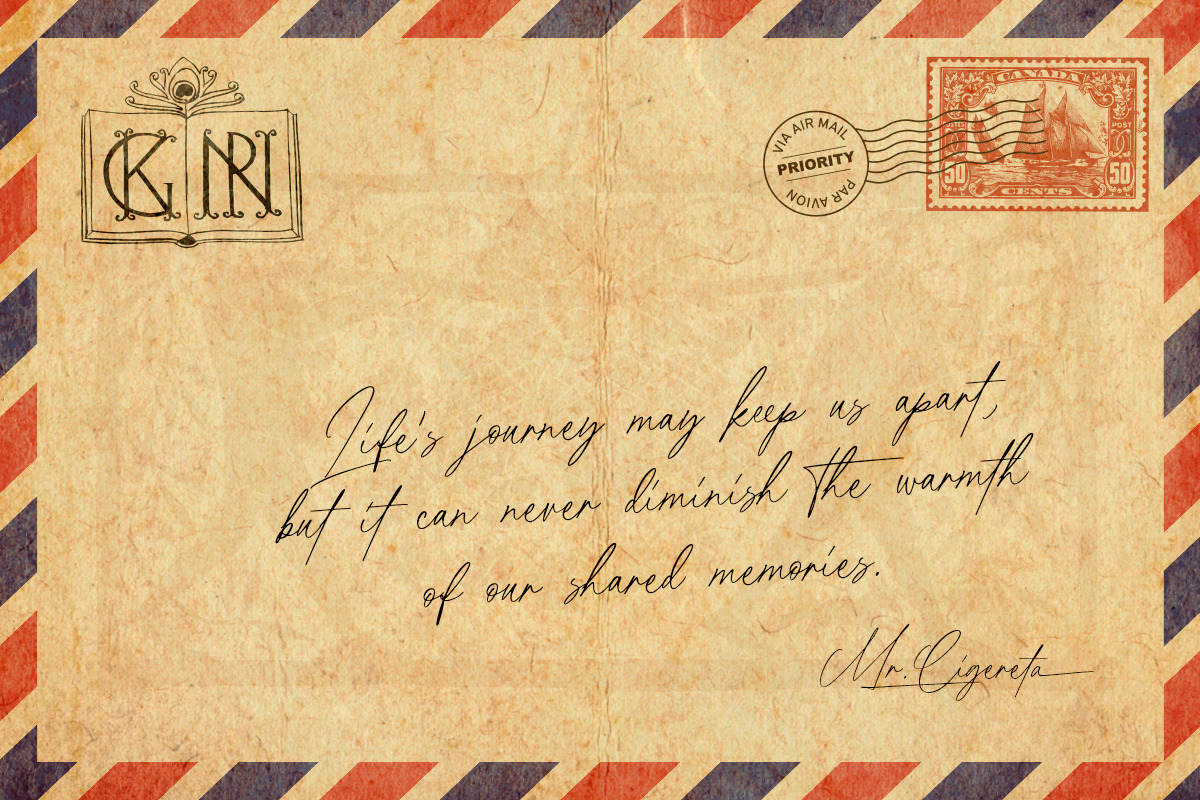 GK NR
CANADA
VIA AIR MAIL
PRIORITY
PAR AVION
POSTES POST
50 50
CENTS
Life's journey may keep us apart,
but it can never diminish the warmth
of our shared memories.
Mr. Cigereta